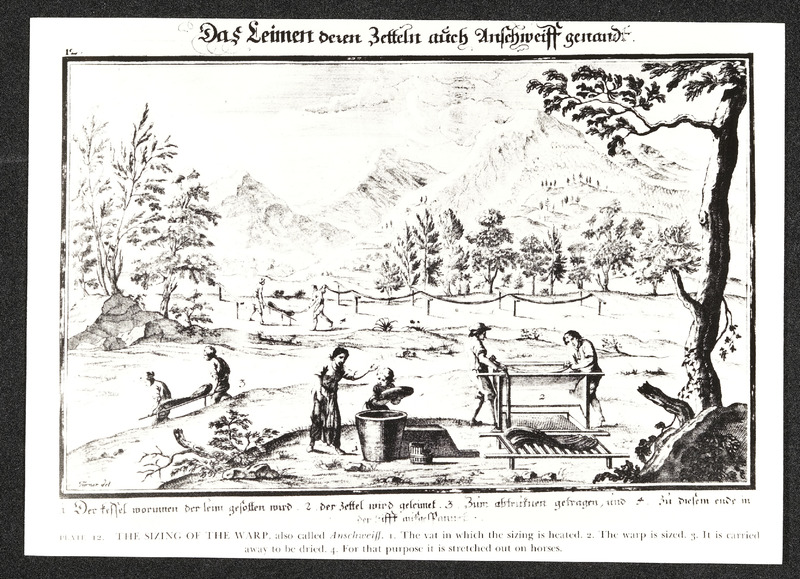 Das Leimen deren Zetteln auch Anschweiff genandt.
12.
3
2
1. Der kessel worinnen der leim gesotten wird. 2. der Zettel wird geleimet. 3. Zum abtruknen getragen, und 4. Zu diesem ende in
der lufft
PLATE 12. THE SIZING OF THE WARP, also called Anschweiff. 1. The vat in which the sizing is heated. 2. The warp is sized. 3. It is carried
away to be dried. 4. For that purpose it is stretched out on horses.